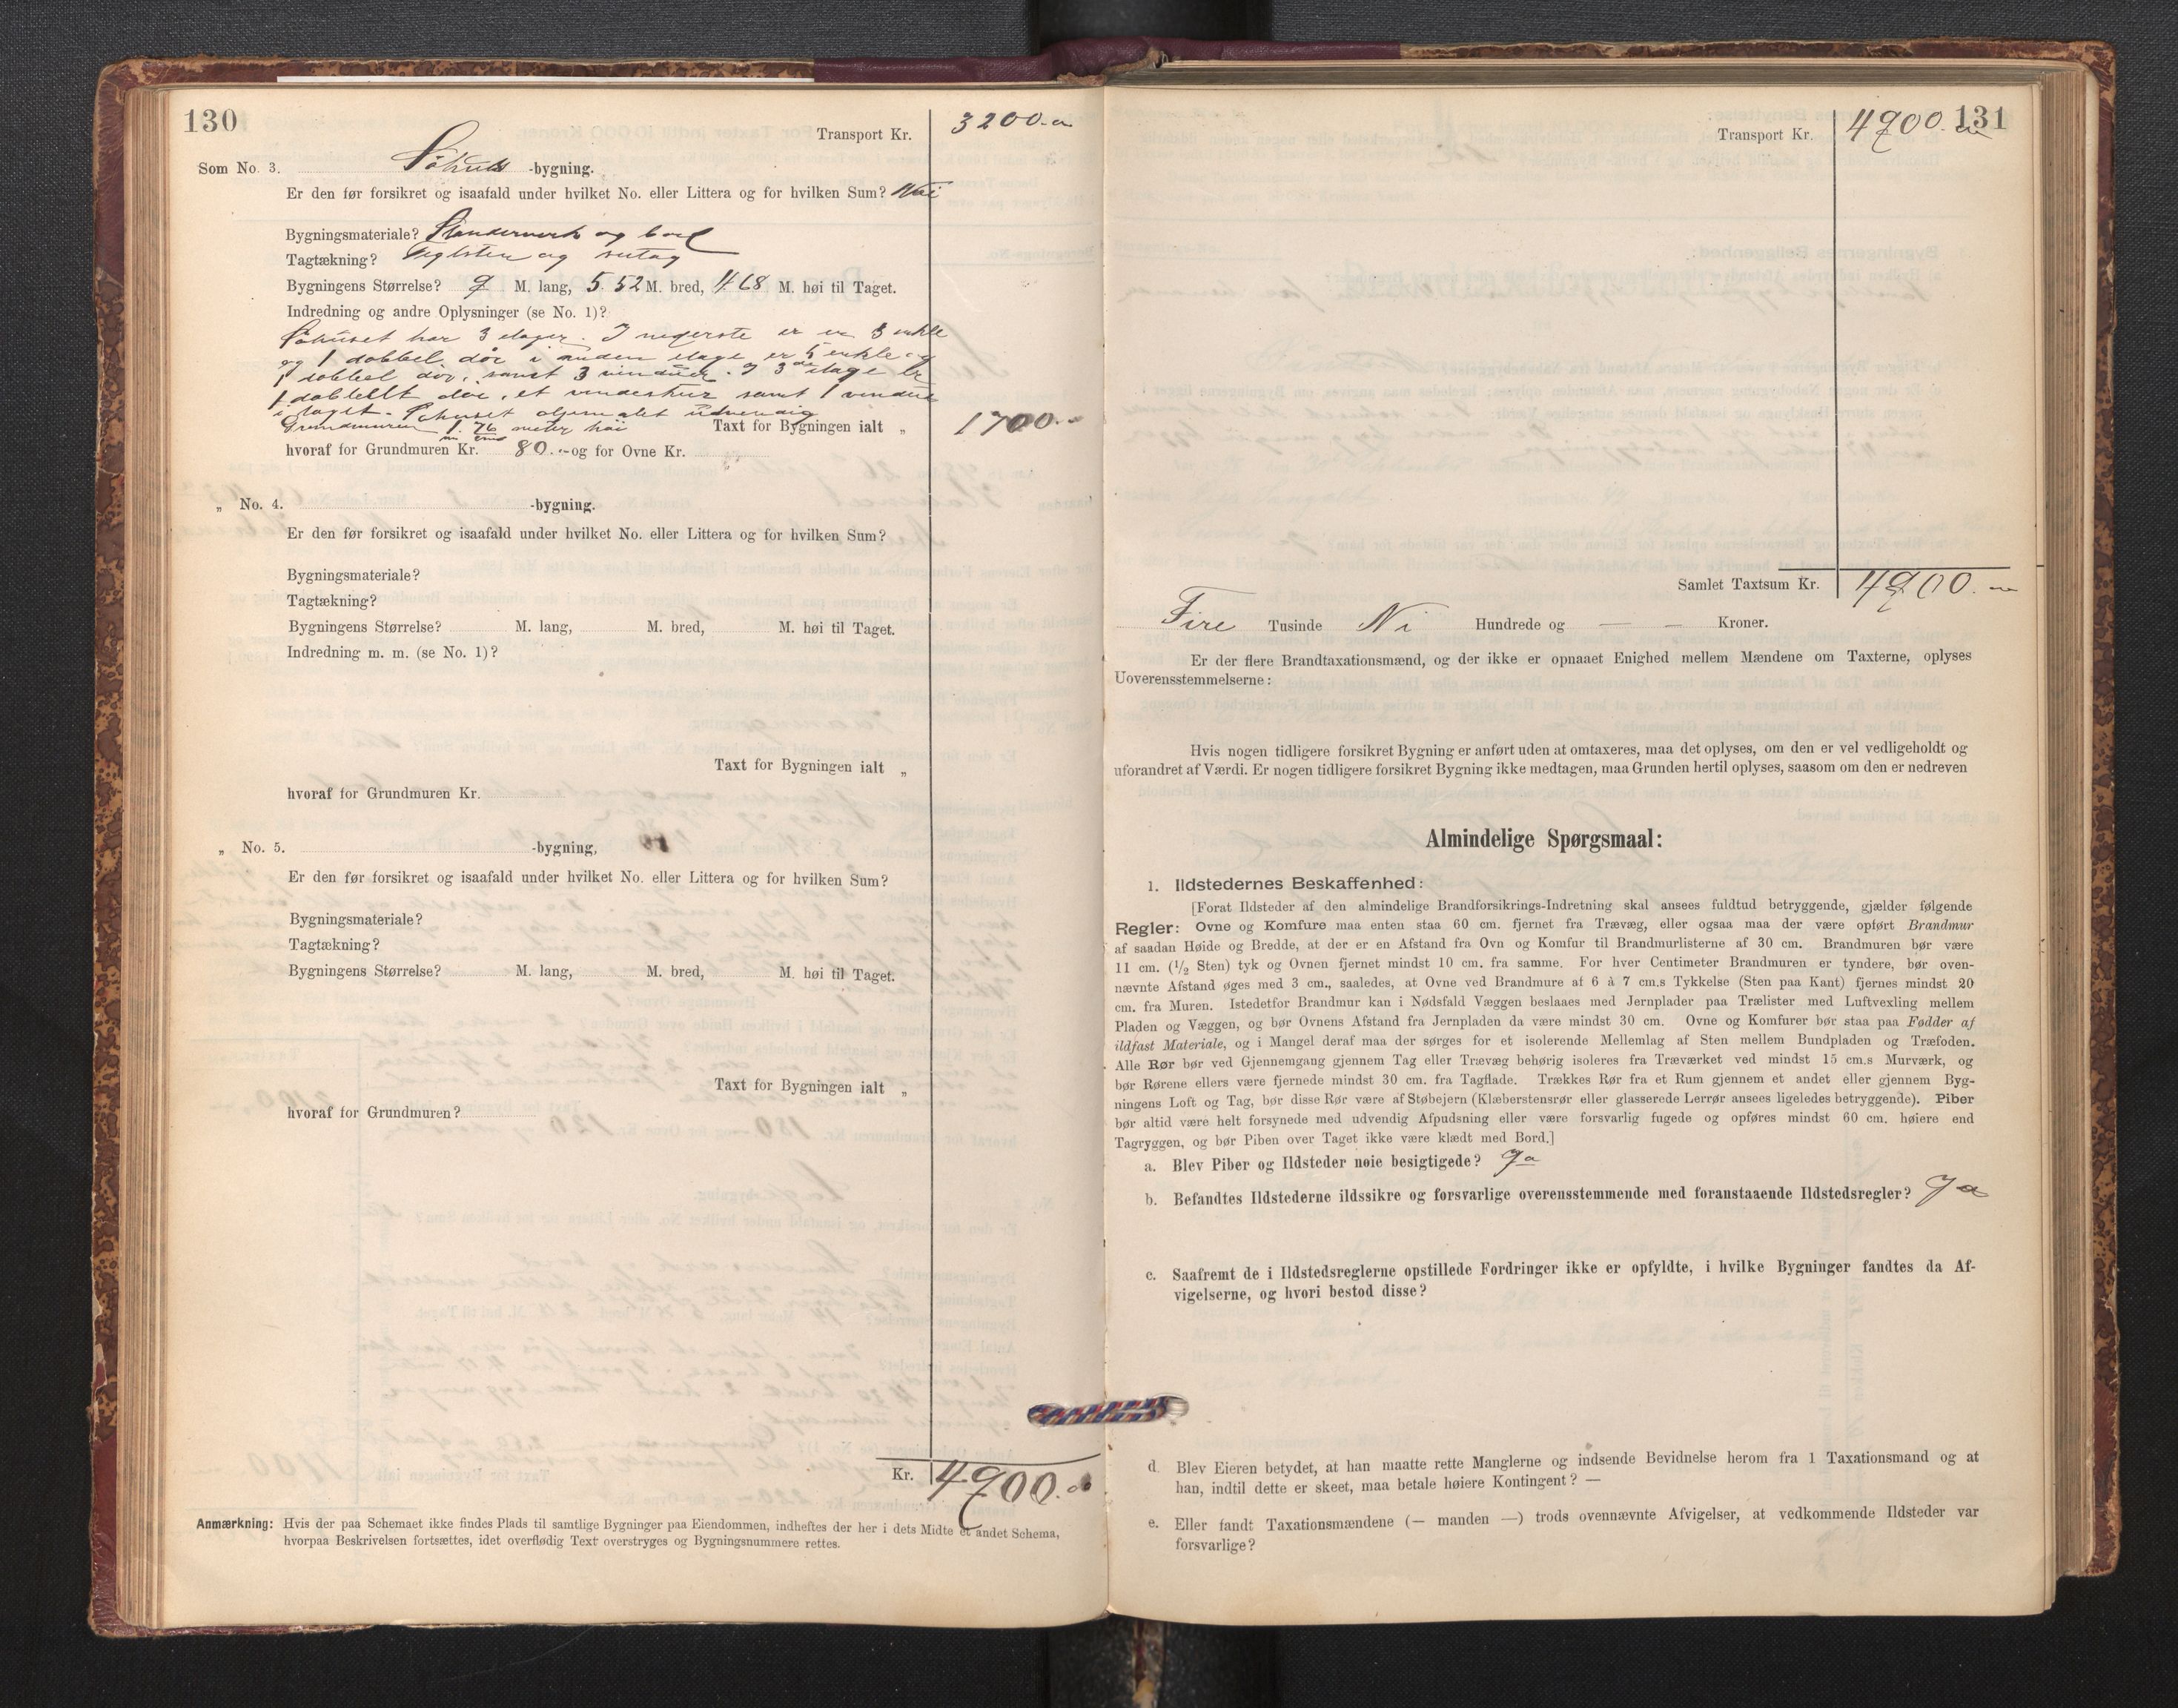 130
Transport Kr. 3200.
Som No. 3. Söhuus -bygning.
Er den før forsikret og isaafald under hvilket No. eller Littera og for hvilken Sum? Nei
Bygningsmateriale? Standerverk og bord
Tagtækning? Teglsten og sutag
Bygningens Størrelse? 9 M. lang, 5.52 M. bred, 4.68 M. høi til Taget.
Indredning og andre Oplysninger (se No. 1)?
Söhuset har 3 etager. I nederste er en 3 enkle
og 1 dobbel dör i anden etage er 5 enkle og
1 dobbel dör, samt 3 vinduer. I 3de etage er
1 dobbelt dör, et vindeshuz samt 1 vindue
i taget. Söhuset oljemalet udvendig
Grundmuren 1.76 meter höi Taxt for Bygningen ialt „ 1700.
hvoraf for Grundmuren Kr. 80.- og for Ovne Kr.
„ No. 4. -bygning.
Er den før forsikret og isaafald under hvilket No. eller Littera og for hvilken Sum?
Bygningsmateriale?
Tagtækning?
Bygningens Størrelse? M. lang, M. bred, M. høi til Taget.
Indredning m. m. (se No. 1)?
Taxt for Bygningen ialt „
hvoraf for Grundmuren Kr.
„ No. 5. -bygning,
Er den før forsikret og isaafald under hvilket No. eller Littera og for hvilken Sum?
Bygningsmateriale?
Tagtækning?
Bygningens Størrelse? M. lang, M. bred, M. høi til Taget.
Taxt for Bygningen ialt „
hvoraf for Grundmuren?
Kr. 4900.
Anmærkning: Hvis der paa Schemaet ikke findes Plads til samtlige Bygninger paa Eiendommen, indheftes der her i dets Midte et andet Schema,
hvorpaa Beskrivelsen fortsættes, idet overflødig Text overstryges og Bygningsnummere rettes.
131
Transport Kr. 4900.
Samlet Taxtsum Kr. 4900.
Fire Tusinde Ni Hundrede og — — Kroner.
Er der flere Brandtaxationsmænd, og der ikke er opnaaet Enighed mellem Mændene om Taxterne, oplyses
Uoverensstemmelserne:
Hvis nogen tidligere forsikret Bygning er anført uden at omtaxeres, maa det oplyses, om den er vel vedligeholdt og
uforandret af Værdi. Er nogen tidligere forsikret Bygning ikke medtagen, maa Grunden hertil oplyses, saasom om den er nedreven
Almindelige Spørgsmaal:
1. Ildstedernes Beskaffenhed:
[Forat Ildsteder af den almindelige Brandforsikrings-Indretning skal ansees fuldtud betryggende, gjælder følgende
Regler: Ovne og Komfure maa enten staa 60 cm. fjernet fra Trævæg, eller ogsaa maa der være opført Brandmur
af saadan Høide og Bredde, at der er en Afstand fra Ovn og Komfur til Brandmurlisterne af 30 cm. Brandmuren bør være
11 cm. (1/2 Sten) tyk og Ovnen fjernet mindst 10 cm. fra samme. For hver Centimeter Brandmuren er tyndere, bør oven-
nævnte Afstand øges med 3 cm., saaledes, at Ovne ved Brandmure af 6 à 7 cm.s Tykkelse (Sten paa Kant) fjernes mindst 20
cm. fra Muren. Istedetfor Brandmur kan i Nødsfald Væggen beslaaes med Jernplader paa Trælister med Luftvexling mellem
Pladen og Væggen, og bør Ovnens Afstand fra Jernpladen da være mindst 30 cm. Ovne og Komfurer bør staa paa Fødder af
ildfast Materiale, og i Mangel deraf maa der sørges for et isolerende Mellemlag af Sten mellem Bundpladen og Træfoden.
Alle Rør bør ved Gjennemgang gjennem Tag eller Trævæg behørig isoleres fra Træværket ved mindst 15 cm.s Murværk, og
bør Rørene ellers være fjernede mindst 30 cm. fra Tagflade. Trækkes Rør fra et Rum gjennem et andet eller gjennem Byg-
ningens Loft og Tag, bør disse Rør være af Støbejern (Klæberstensrør eller glasserede Lerrør ansees ligeledes betryggende). Piber
bør altid være helt forsynede med udvendig Afpudsning eller være forsvarlig fugede og opføres mindst 60 cm. høiere end
Tagryggen, og bør Piben over Taget ikke være klædt med Bord.]
a. Blev Piber og Ildsteder nøie besigtigede? Ja
b. Befandtes Ildstederne ildssikre og forsvarlige overensstemmende med foranstaaende Ildstedsregler? Ja
c. Saafremt de i Ildstedsreglerne opstillede Fordringer ikke er opfyldte, i hvilke Bygninger fandtes da Af-
vigelserne, og hvori bestod disse?
d. Blev Eieren betydet, at han maatte rette Manglerne og indsende Bevidnelse herom fra 1 Taxationsmand og at
han, indtil dette er skeet, maa betale høiere Kontingent? —
e. Eller fandt Taxationsmændene (— manden —) trods ovennævnte Afvigelser, at vedkommende Ildsteder var
forsvarlige?